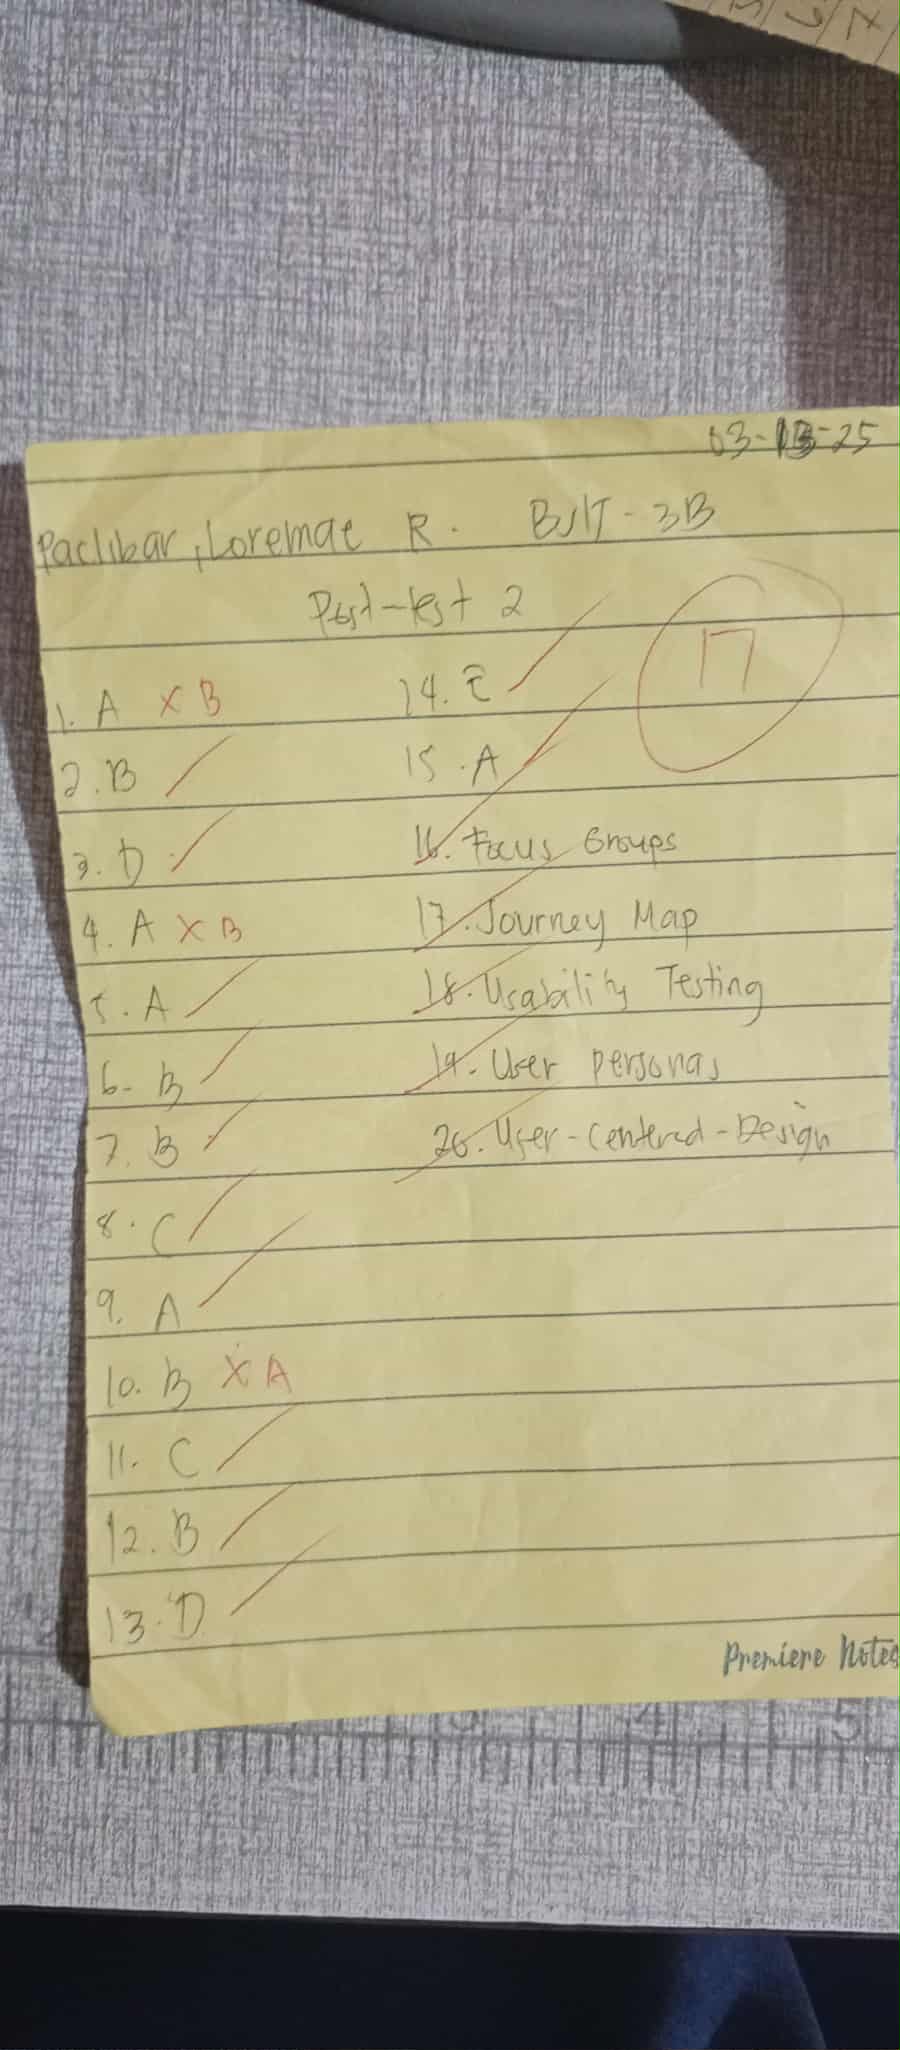 03-13-25
Paclibar, Loremae R. BSIT - 3B
Post-test 2
17
1. A X B
2. B
3. D
4. A X B
5. A
6. B
7. B
8. C
9. A
10. B X A
11. C
12. B
13. D
14. C
15. A
16. Focus Groups
17. Journey Map
18. Usability Testing
19. User personas
20. User-Centered-Design
Premiere Notes
3 4 5